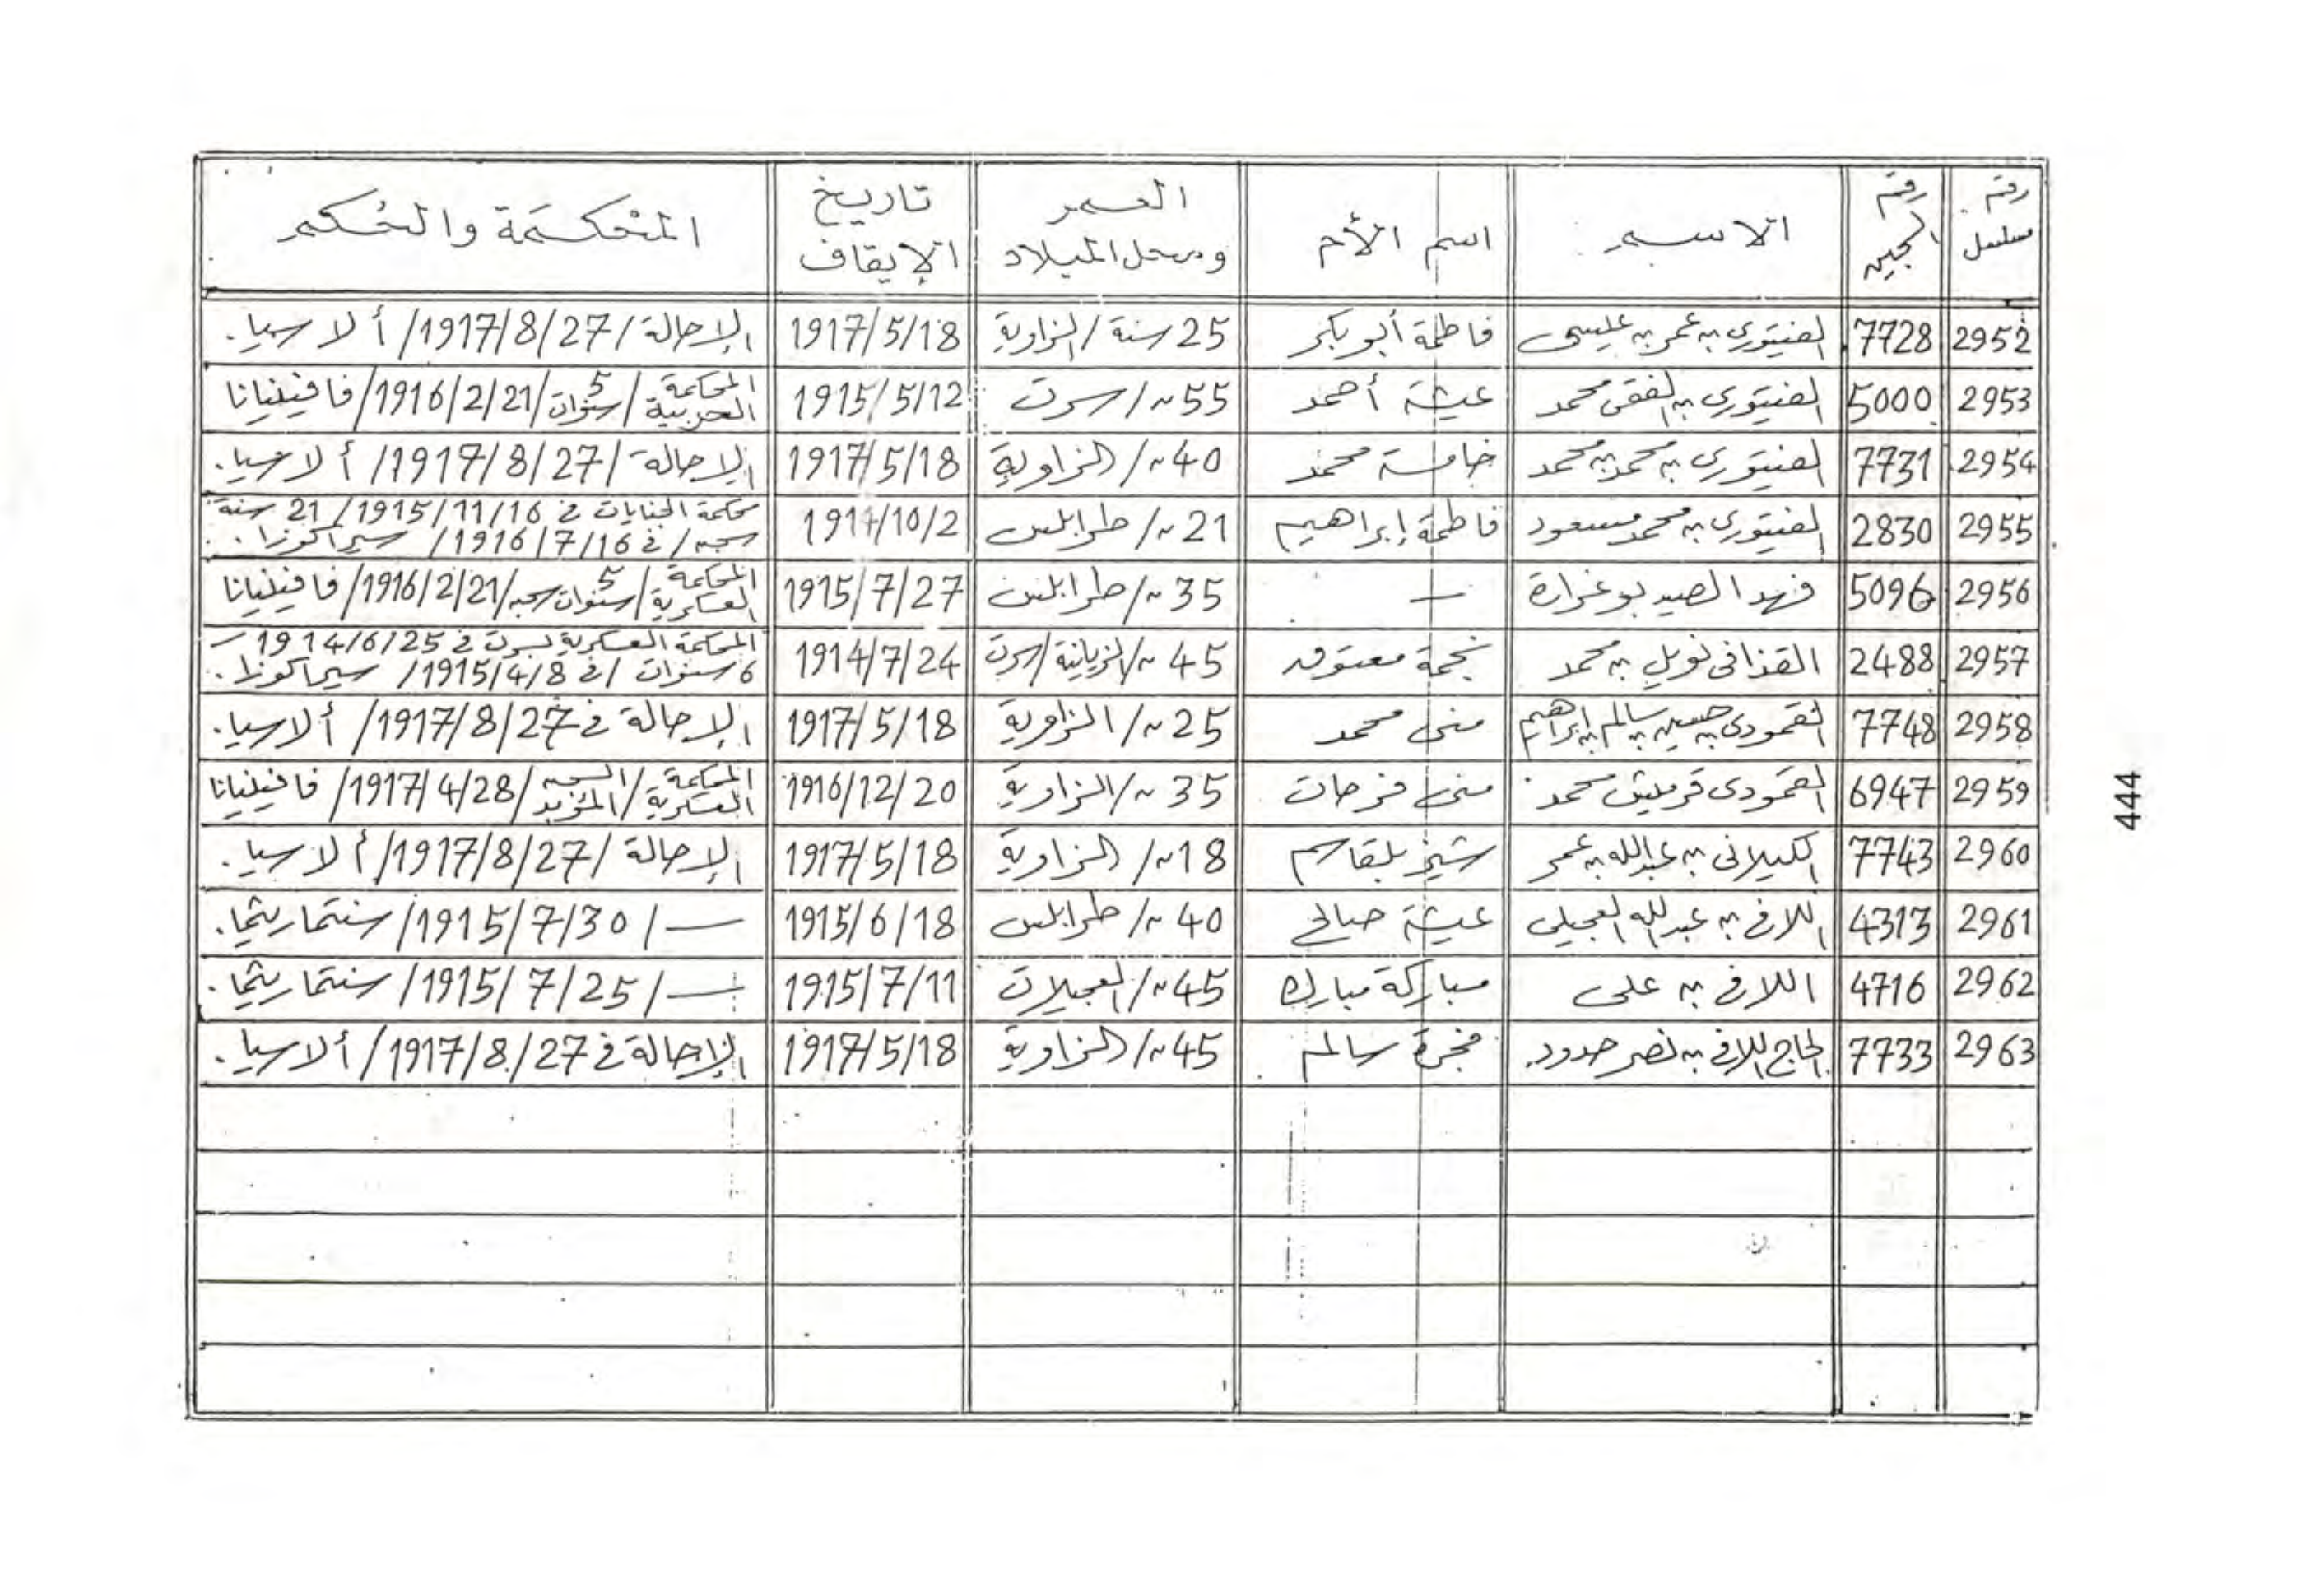 رقم مسلسل | رقم السجين | الاسم | اسم الأم | العمر ومحل الميلاد | تاريخ الإيقاف | المحكمة والحكم
2952 | 7728 | الفيتوري بن عمر بن عيسى | فاطمة أبوبكر | 25 سنة / الزاوية | 1917/5/18 | الإحالة / 1917/8/27 / ألاسيا.
2953 | 5000 | الفيتوري بن الفقي محمد | عيشة أحمد | 55 ~ / سرت | 1915/5/12 | المحكمة الحربية / 5 سنوات / 1916/2/21 / فافينيانا
2954 | 7731 | الفيتوري بن محمد بن محمد | خامسة محمد | 40 ~ / الزاوية | 1917/5/18 | الإحالة / 1917/8/27 / ألاسيا.
2955 | 2830 | الفيتوري بن محمد مسعود | فاطمة إبراهيم | 21 ~ / طرابلس | 1914/10/2 | محكمة الجنايات في 1915/11/16 / 21 سنة سجن / في 1916/7/16 / سيراكوزا.
2956 | 5096 | فهد الصيد بوغرارة | — | 35 ~ / طرابلس | 1915/7/27 | المحكمة العسكرية / 5 سنوات سجن / 1916/2/21 / فافينيانا
2957 | 2488 | القذافي نويل بن محمد | نجمة معتوق | 45 ~ / سرت | 1914/7/24 | المحكمة العسكرية بسرت في 1914/6/25 – 6 سنوات / في 1915/4/8 / سيراكوزا.
2958 | 7748 | القمودي بن حسين بن سالم بن إبراهيم | منى محمد | 25 ~ / الزاوية | 1917/5/18 | الإحالة في 1917/8/27 / ألاسيا.
2959 | 6947 | القمودي قرميش محمد | منى فرحات | 35 ~ / الزاوية | 1916/12/20 | المحكمة العسكرية / السجن المؤبد / 1917/4/28 / فافينيانا
2960 | 7743 | الكيلاني بن عبدالله بن عمر | بلقاسم | 18 ~ / الزاوية | 1917/5/18 | الإحالة / 1917/8/27 / ألاسيا.
2961 | 4313 | اللافي بن عبدالله العجيلي | عيشة صالح | 40 ~ / طرابلس | 1915/6/18 | — / 1915/7/30 / سنتماريثما.
2962 | 4716 | اللافي بن علي | مباركة مبارك | 45 ~ / العجيلات | 1915/7/11 | — / 1915/7/25 / سنتماريثما.
2963 | 7733 | الحاج اللافي بن نصر حدود | فجرة سالم | 45 ~ / الزاوية | 1917/5/18 | الإحالة في 1917/8/27 / ألاسيا.
444